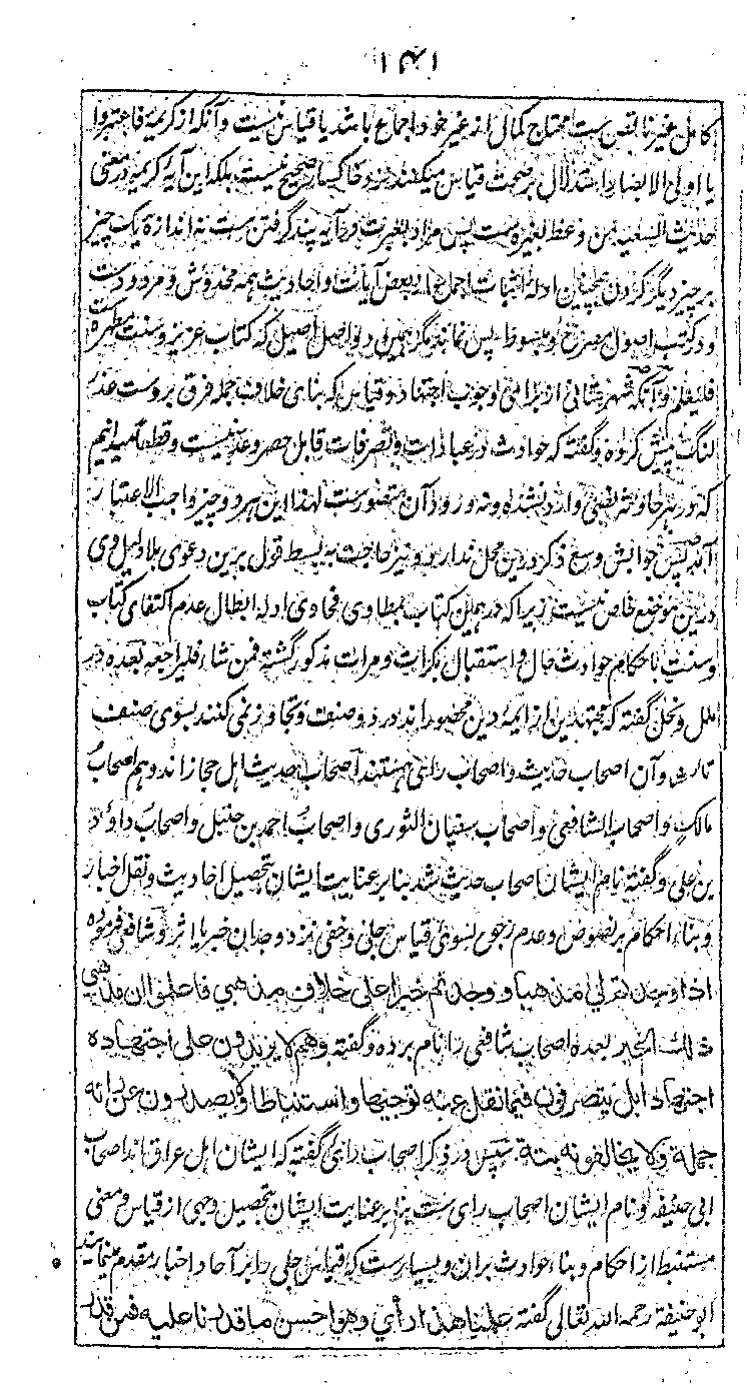 ۱۴۱
کامل غیر ناقص ست محتاج کمالی از غیر خود اجماع باشد یا قیاس نیست و آنکه از کریمه فاعتبروا
یا اولی الابصار استدلال بر صحت قیاس میکنند نزد خاکسار صحیح نیست بلکه این آیه کریمه در معنی
حدیث السعید من وعظ بغیره ست پس مراد بعبرت در آیه پند گرفتن ست نه اندازهٔ یک چیز
بر چیز دیگر کردن همچنین ادله اثبات اجماع از بعض آیات و احادیث همه مخدوش و مردودست
و در کتب اصول مصرح و مبسوط پس نماند مگر همین دو اصل اصیل که کتاب عزیز و سنت مطهره
فلیعلم و آنکه شهرستانی از برای وجوب اجتهاد و قیاس که بنای خلاف جمله فرق بروست عذر
لنگ پیش کرده و گفته که حوادث در عبادات و تصرفات قابل حصر و عد نیست و قطعا میدانیم
که در هر حادثه نصی وارد نشده و نه ورود آن متصورست لهذا این هر دو چیز واجب الاعتبار
آمد پس جوابش وسع ذکر درین محل ندارد و نیز حاجت به بسط قول برین دعوی بلا دلیل وی
درین موضع خاص نیست زیرا که در همین کتاب بمطاوی فحاوی ادله ابطال عدم اکتفای کتاب
و سنت باحکام حوادث حال و استقبال بکرات و مرات مذکور گشته فمن شاء فلیراجعه بعده در
ملل و نحل گفته که مجتهدین از ایمهٔ دین محصور اند در دو صنف و تجاوز نمی کنند بسوی صنف
ثالث و آن اصحاب حدیث و اصحاب رای هستند اصحاب حدیث اهل حجاز اند و هم اصحاب
مالک و اصحاب الشافعی و اصحاب سفیان الثوری و اصحاب احمد بن حنبل و اصحاب داؤد
بن علی و گفته نام ایشان اصحاب حدیث شد بنا بر عنایت ایشان بتحصیل احادیث و نقل اخبار
و بناء احکام بر نصوص و عدم رجوع بسوی قیاس جلی و خفی نزد وجدان خبر یا اثر و شافعی فرموده
اذا وجدتم لی مذهبا و وجدتم خبرا علی خلاف مذهبی فاعلموا ان مذهبی
ذلک الخبر بعده اصحاب شافعی را نام برده و گفته وهم لا یزیدون علی اجتهاده
اجتهادا بل یتصرفون فیما نقل عنه توجیها و استنباطا ولا یصدرون عن رایه
جملة ولا یخالفونه بتة سپس در ذکر اصحاب رای گفته که ایشان اهل عراق اند اصحاب
ابی حنیفه و نام ایشان اصحاب رای ست بنا بر عنایت ایشان بتحصیل وجهی از قیاس و معنی
مستنبط از احکام و بناء حوادث بران و بسیارست که قیاس جلی را بر آحاد اخبار مقدم مینمایند
ابو حنیفة رحمه الله تعالی گفته علمنا هذا رأی وهو احسن ما قدرنا علیه فمن قدر